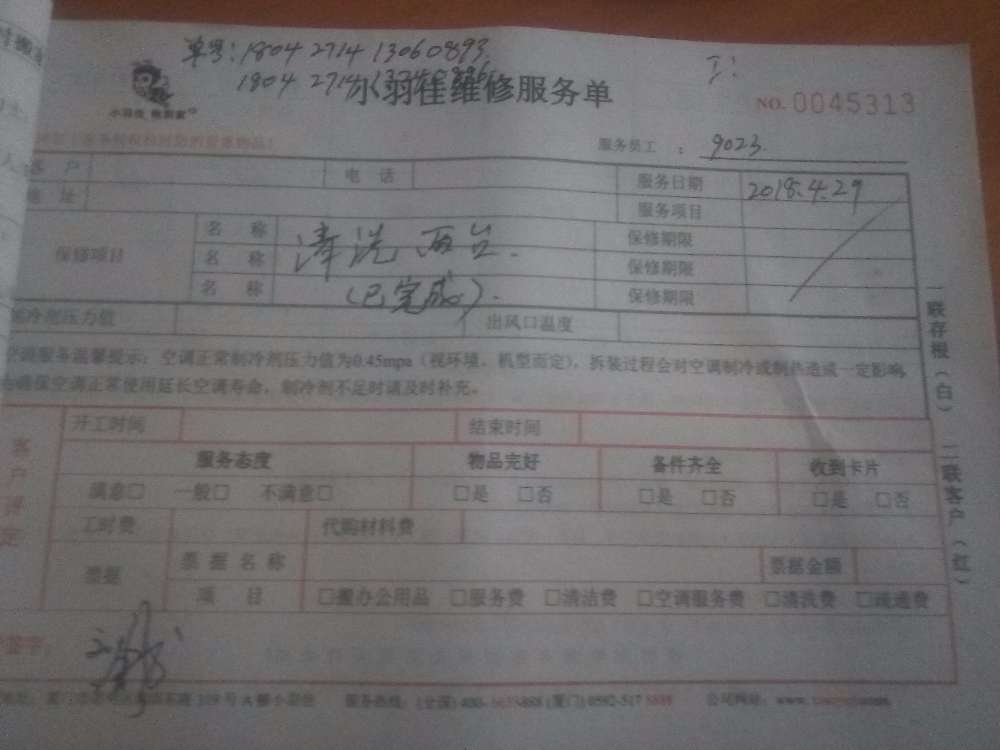 单号:1804 2714 13060893
1804 2714
小羽佳维修服务单
NO. 0045313
服务员工 : 9023
客户 电话 服务日期 2018.4.29
地址 服务项目
保修项目 名称 清洗两台. 保修期限
名称 保修期限
名称 (已完成). 保修期限
制冷剂压力值 出风口温度
空调服务温馨提示:空调正常制冷剂压力值为0.45mpa(视环境、机型而定),拆装过程会对空调制冷或制热造成一定影响,
为确保空调正常使用延长空调寿命,制冷剂不足时请及时补充。
一联存根(白) 二联客户(红)
开工时间 结束时间
服务态度 物品完好 备件齐全 收到卡片
满意□ 一般□ 不满意□ □是 □否 □是 □否 □是 □否
工时费 代购材料费
票据 票据名称 票据金额
项目 □搬办公用品 □服务费 □清洁费 □空调服务费 □清洗费 □疏通费
签字:
地址: 路 A 小羽佳 服务热线:(全国)400- (厦门)0592-517 公司网址:www.